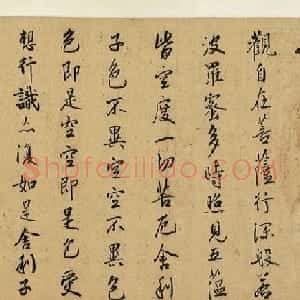 觀自在菩薩行深般若
波羅蜜多時照見五蘊
皆空度一切苦厄舍利
子色不異空空不異色
色即是空空即是色受
想行識亦復如是舍利子
Shufaziliao.com